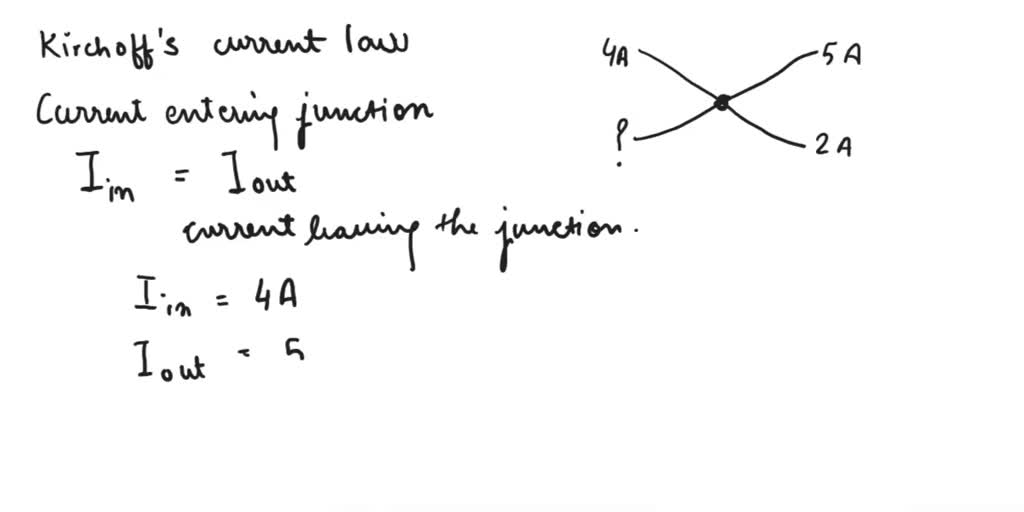 Kirchoff's current law
Current entering junction
I in = I out
current leaving the junction.
I in = 4A
I out = 5
4A
5 A
?
2 A